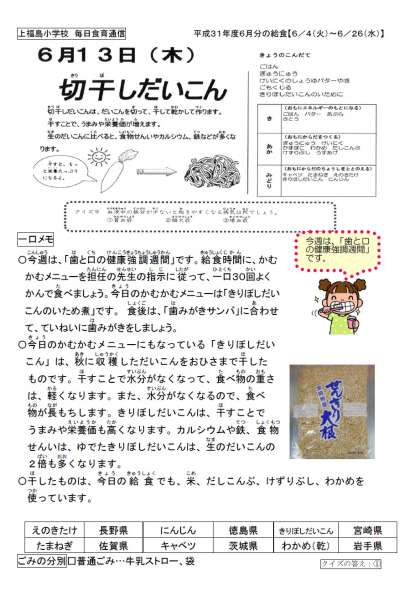 上福島小学校 毎日食育通信
平成31年度6月分の給食【6/4(火)～6/26(水)】
6月13日(木)
切干しだいこん
切干しだいこんは、だいこんを切って、干して乾かして作ります。
干すことで、うまみや栄養価が増えます。
生のだいこんに比べると、食物せんいやカルシウム、鉄などが多くなります。
きょうのこんだて
ごはん
ぎゅうにゅう
けいにくのしょうゆバターやき
ごもくじる
きりぼしだいこんのいために
き
(おもにエネルギーのもとになる)
ごはん バター あぶら
さとう
あか
(おもにからだをつくる)
ぎゅうにゅう けいにく
わかめ だしこんぶ
けずりぶし うすあげ
みどり
(おもにからだのちょうしをととのえる)
キャベツ たまねぎ えのきたけ
きりぼしだいこん にんじん
一口メモ
○今週は、「歯と口の健康強調週間」です。給食時間に、かむ
かむメニューを担任の先生の指示に従って、一口30回よく
かんで食べましょう。今日のかむかむメニューは「きりぼしだい
こんのいため煮」です。 食後は、「歯みがきサンバ」に合わせ
て、ていねいに歯みがきをしましょう。
今週は、「歯と口
の健康強調週間」
です。
○今日のかむかむメニューにもなっている「きりぼしだいこ
ん」は、秋に収穫しただいこんをおひさまで干した
ものです。干すことで水分がなくなって、食べ物の重さ
は、軽くなります。また、水分がなくなるので、食べ
物が長もちします。きりぼしだいこんは、干すことで
うまみや栄養価も高くなります。カルシウムや鉄、食物
せんいは、ゆでたきりぼしだいこんは、生のだいこんの
2倍も多くなります。
せんぎり大根
○干したものは、今日の給食でも、米、だしこんぶ、けずりぶし、わかめを
使っています。
えのきたけ 長野県 にんじん 徳島県 きりぼしだいこん 宮崎県
たまねぎ 佐賀県 キャベツ 茨城県 わかめ(乾) 岩手県
ごみの分別 □普通ごみ…牛乳ストロー、袋
クイズの答え:①